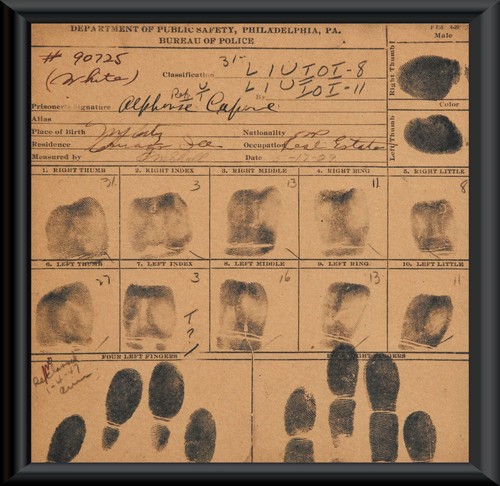 DEPARTMENT OF PUBLIC SAFETY, PHILADELPHIA, PA.
BUREAU OF POLICE
Male
# 90725
(White)
31-
Classification L I U I O I - 8
Ref. U T L I U I O I - 11
Prisoner's Signature Alphonse Capone
Color
Alias
Place of Birth Nationality
Residence Chicago Ills Occupation Real Estate
Measured by Date 5-17-29
Right Thumb
Left Thumb
1. RIGHT THUMB 2. RIGHT INDEX 3. RIGHT MIDDLE 4. RIGHT RING 5. RIGHT LITTLE
31 3 13 11 8
6. LEFT THUMB 7. LEFT INDEX 8. LEFT MIDDLE 9. LEFT RING 10. LEFT LITTLE
27 3 16 13 11
T
?
FOUR LEFT FINGERS FINGERS